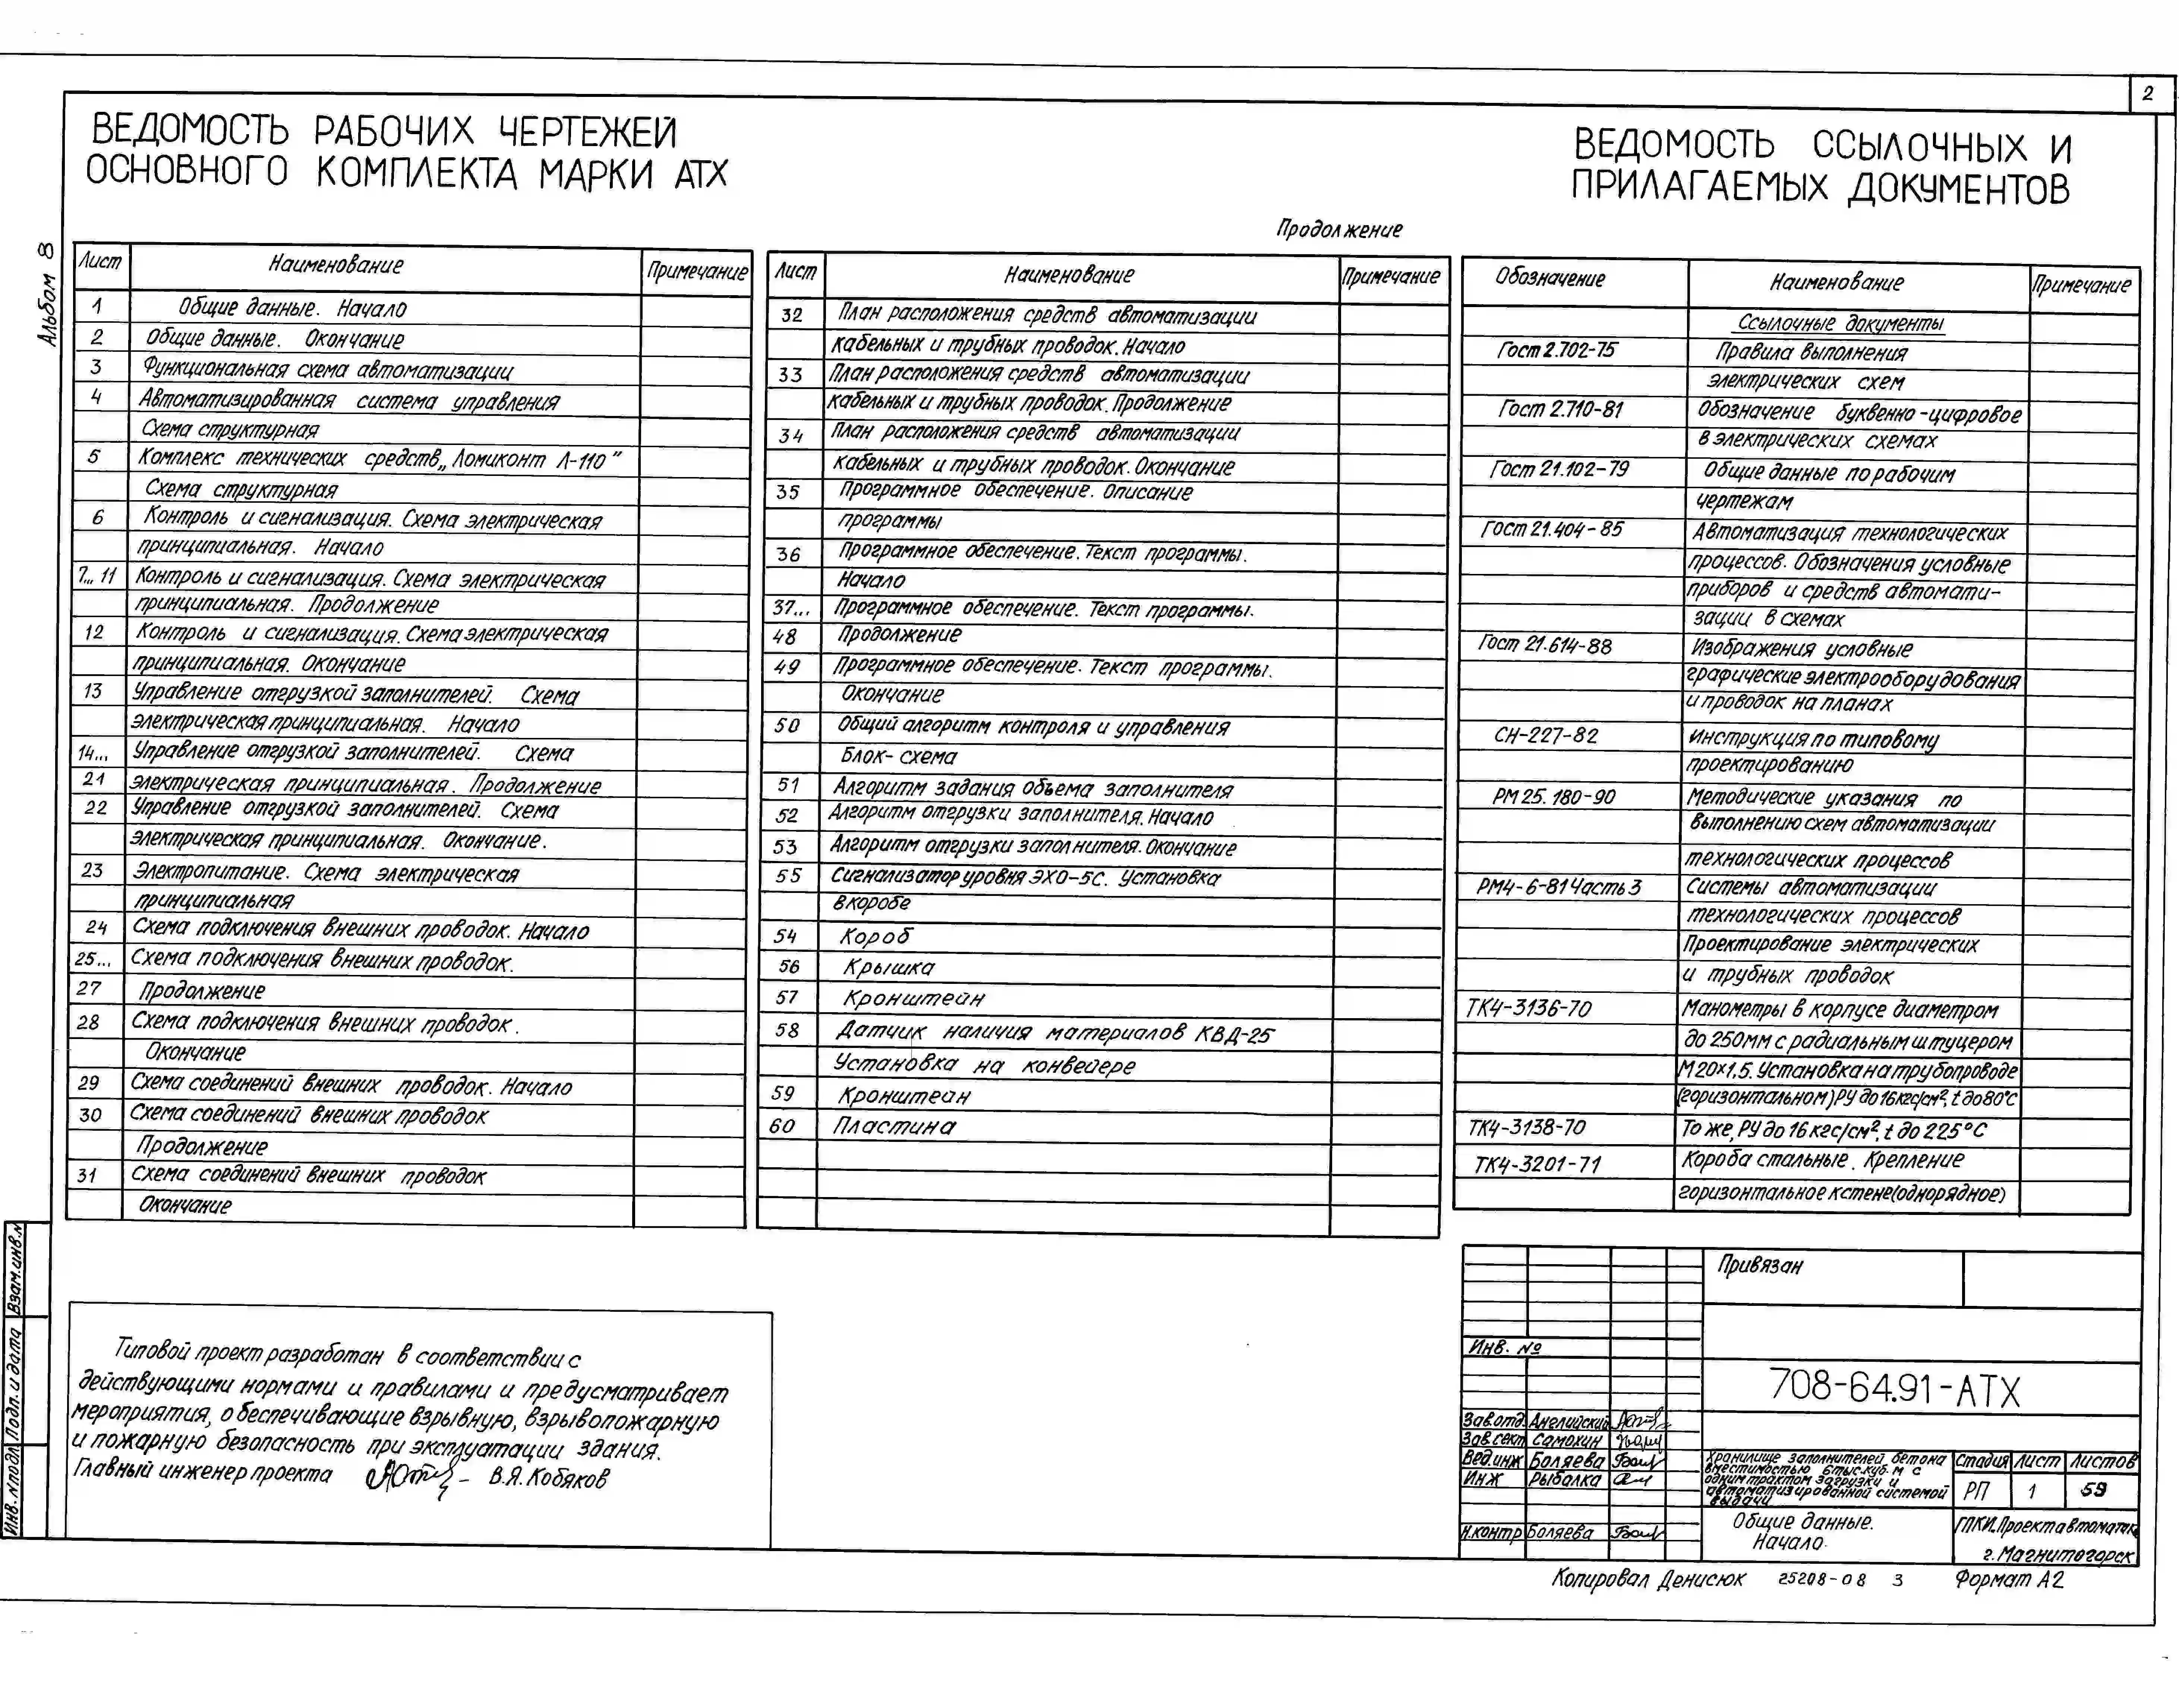 2
ВЕДОМОСТЬ РАБОЧИХ ЧЕРТЕЖЕЙ
ОСНОВНОГО КОМПЛЕКТА МАРКИ АТХ
Альбом 8
Лист Наименование Примечание
1 Общие данные. Начало
2 Общие данные. Окончание
3 Функциональная схема автоматизации
4 Автоматизированная система управления
Схема структурная
5 Комплекс технических средств „Ломиконт Л-110"
Схема структурная
6 Контроль и сигнализация. Схема электрическая
принципиальная. Начало
7...11 Контроль и сигнализация. Схема электрическая
принципиальная. Продолжение
12 Контроль и сигнализация. Схема электрическая
принципиальная. Окончание
13 Управление отгрузкой заполнителей. Схема
электрическая принципиальная. Начало
14... Управление отгрузкой заполнителей. Схема
21 электрическая принципиальная. Продолжение
22 Управление отгрузкой заполнителей. Схема
электрическая принципиальная. Окончание.
23 Электропитание. Схема электрическая
принципиальная
24 Схема подключения внешних проводок. Начало
25... Схема подключения внешних проводок.
27 Продолжение
28 Схема подключения внешних проводок.
Окончание
29 Схема соединений внешних проводок. Начало
30 Схема соединений внешних проводок
Продолжение
31 Схема соединений внешних проводок
Окончание
Продолжение
Лист Наименование Примечание
32 План расположения средств автоматизации
кабельных и трубных проводок. Начало
33 План расположения средств автоматизации
кабельных и трубных проводок. Продолжение
34 План расположения средств автоматизации
кабельных и трубных проводок. Окончание
35 Программное обеспечение. Описание
программы
36 Программное обеспечение. Текст программы.
Начало
37... Программное обеспечение. Текст программы.
48 Продолжение
49 Программное обеспечение. Текст программы.
Окончание
50 Общий алгоритм контроля и управления
Блок-схема
51 Алгоритм задания объема заполнителя
52 Алгоритм отгрузки заполнителя. Начало
53 Алгоритм отгрузки заполнителя. Окончание
55 Сигнализатор уровня ЭХО-5С. Установка
в коробе
54 Короб
56 Крышка
57 Кронштейн
58 Датчик наличия материалов КВД-25
Установка на конвейере
59 Кронштейн
60 Пластина
ВЕДОМОСТЬ ССЫЛОЧНЫХ И
ПРИЛАГАЕМЫХ ДОКУМЕНТОВ
Обозначение Наименование Примечание
Ссылочные документы
Гост 2.702-75 Правила выполнения
электрических схем
Гост 2.710-81 Обозначение буквенно-цифровое
в электрических схемах
Гост 21.102-79 Общие данные по рабочим
чертежам
Гост 21.404-85 Автоматизация технологических
процессов. Обозначения условные
приборов и средств автомати-
зации в схемах
Гост 21.614-88 Изображения условные
графические электрооборудования
и проводок на планах
СН-227-82 Инструкция по типовому
проектированию
РМ 25.180-90 Методические указания по
выполнению схем автоматизации
технологических процессов
РМ4-6-81 Часть 3 Системы автоматизации
технологических процессов
Проектирование электрических
и трубных проводок
ТК4-3136-70 Манометры в корпусе диаметром
до 250мм с радиальным штуцером
М20×1,5. Установка на трубопроводе
(горизонтальном) РУ до 16 кгс/см², t до 80°С
ТК4-3138-70 То же, РУ до 16 кгс/см², t до 225°С
ТК4-3201-71 Короба стальные. Крепление
горизонтальное к стене (однорядное)
Типовой проект разработан в соответствии с
действующими нормами и правилами и предусматривает
мероприятия, обеспечивающие взрывную, взрывопожарную
и пожарную безопасность при эксплуатации здания.
Главный инженер проекта В.Я. Кобяков
Взам.инв.№
Подп. и дата
Инв.№подл
Привязан
Инв. №
708-64.91-АТХ
Зав.отд. Английский
Зав.сект Самохин
Вед.инж Боляева
Инж Рыбалка
Н.контр Боляева
Хранилище заполнителей бетона
вместимостью 6 тыс.куб.м с
одним трактом загрузки и
автоматизированной системой
выдачи
Стадия Лист Листов
РП 1 59
Общие данные.
Начало.
ГПКИ.Проектавтоматика
г. Магнитогорск
Копировал Денисюк 25208-08 3 Формат А2